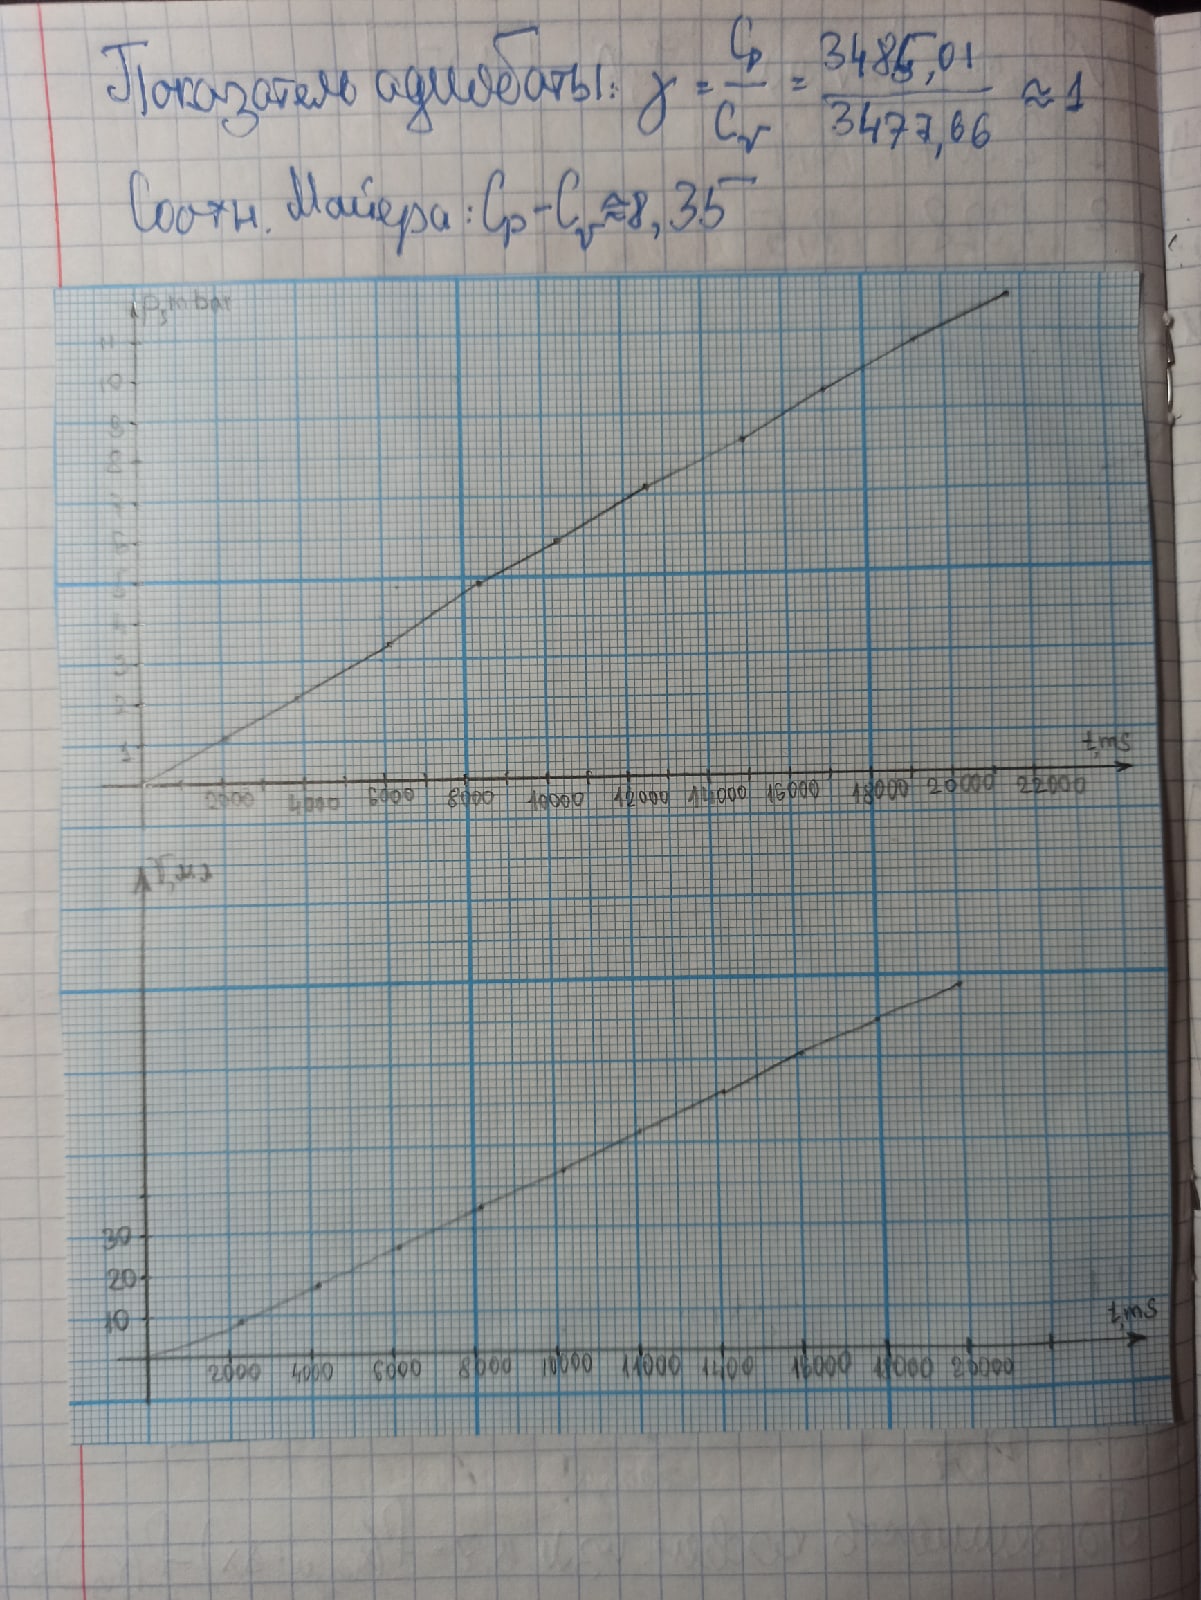 Показатель адиабаты: γ = Cp/Cv = 3485,01/3477,66 ≈ 1
Соотн. Майера: Cp - Cv ≈ 8,35
P, mbar
11
10
9
8
7
6
5
4
3
2
1
t, ms
2000 4000 6000 8000 10000 12000 14000 16000 18000 20000 22000
30
20
10
t, ms
2000 4000 6000 8000 10000 12000 14000 16000 18000 20000